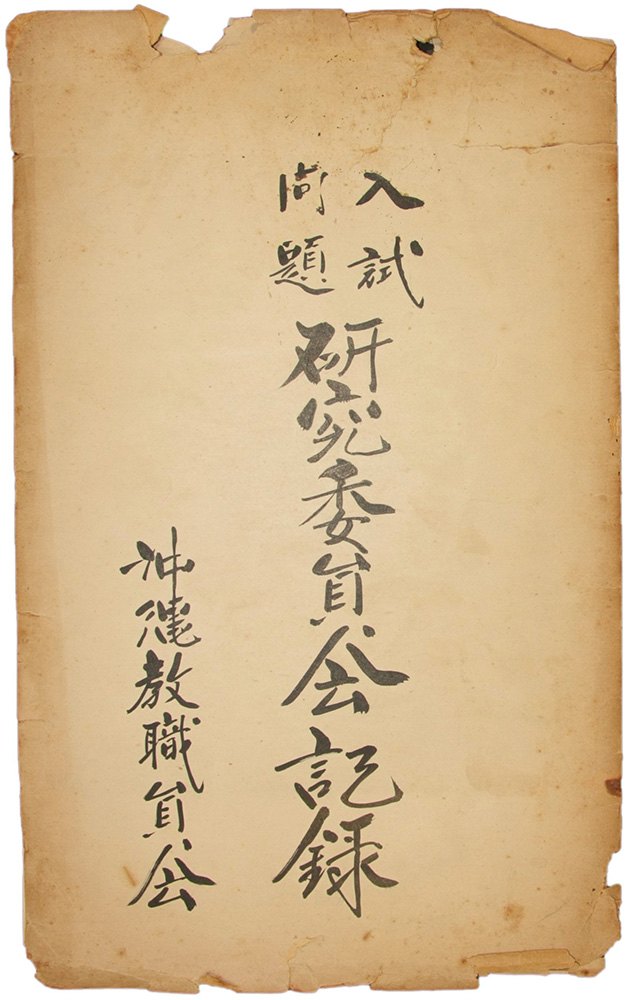 入試
問題
研究委員会記録
沖縄教職員会